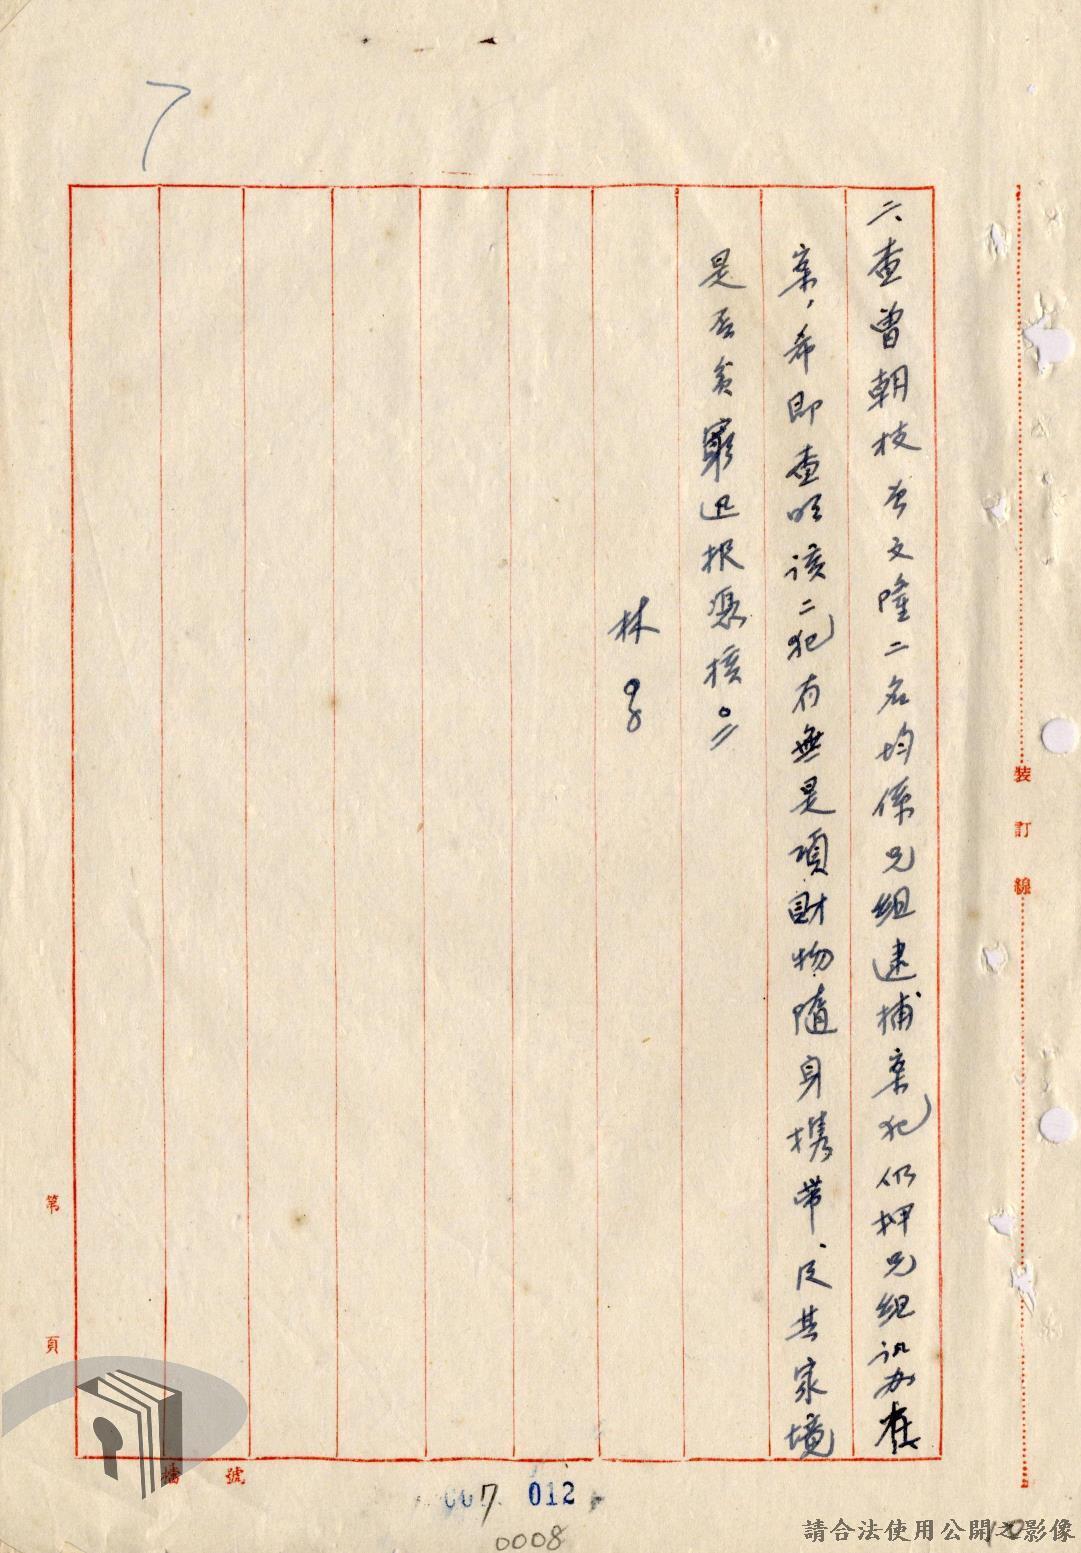 7
二、查曾朝枝曾文隆二名均係兄組逮捕案犯仍押兄組訊辦在
案,希即查明該二犯有無是項財物隨身携帶、及其家境
是否貧窮迅报憑核。
林
裝訂線
第 頁
檔 號
007 012
0008
10
請合法使用公開之影像